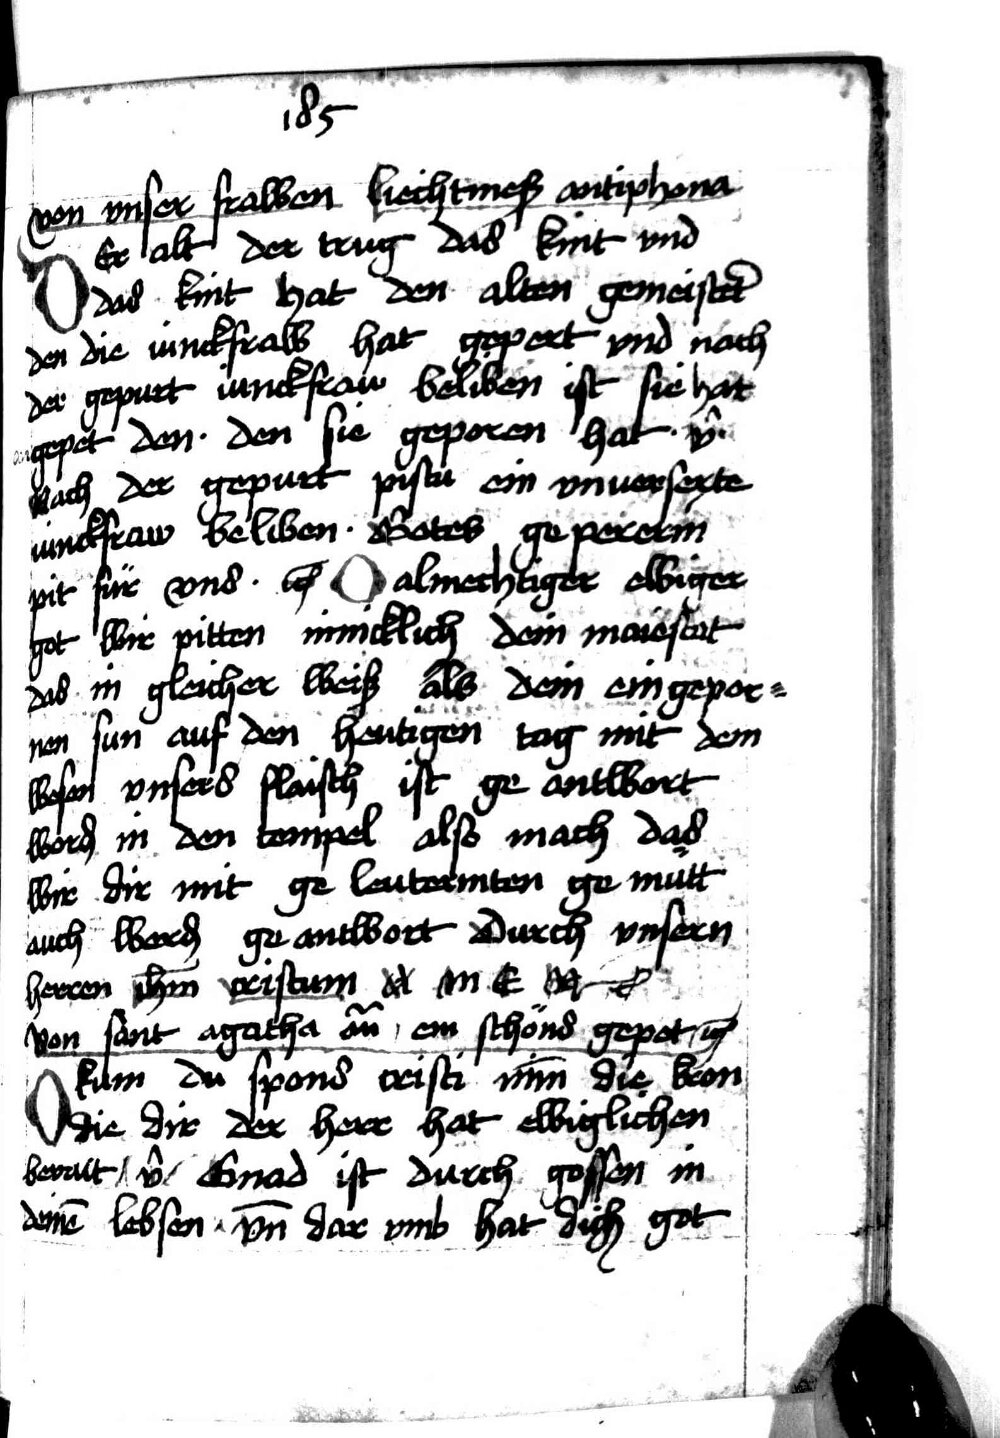 185
von vnser frawen liechtmeß antiphona
Er alt der trug das kint vnd
O das kint hat den alten gemeistert
den die iunckfraw hat gepert vnd nach
der gepurt iunckfraw beliben ist sie hat
angepet den · den sie geporen hat · v̂ ·
Nach der gepurt pistu ein vnuerserte
iunckfraw beliben · Gotes gepererin
pit für vns · O almechtiger ewiger
got wir pitten inniklich dein maiestat
das in gleicher weiß als dein eingepor=
nen sun auf den heutigen tag mit dem
wesen vnsers flaisch ist ge antwort
word in den tempel also mach das
wir dir mit ge leutermten ge mütt
auch werd ge antwort Durch vnsern
herren ihm̄ cristum A M E N
Von sant agatha añ ein schöns gepet
O kum du spons cristi nim̄ die kron
die dir der herr hat ewiglichen
berait v̂ Gnad ist durch gossen in
deinē lebsen · vn̄ dar vmb hat dich got